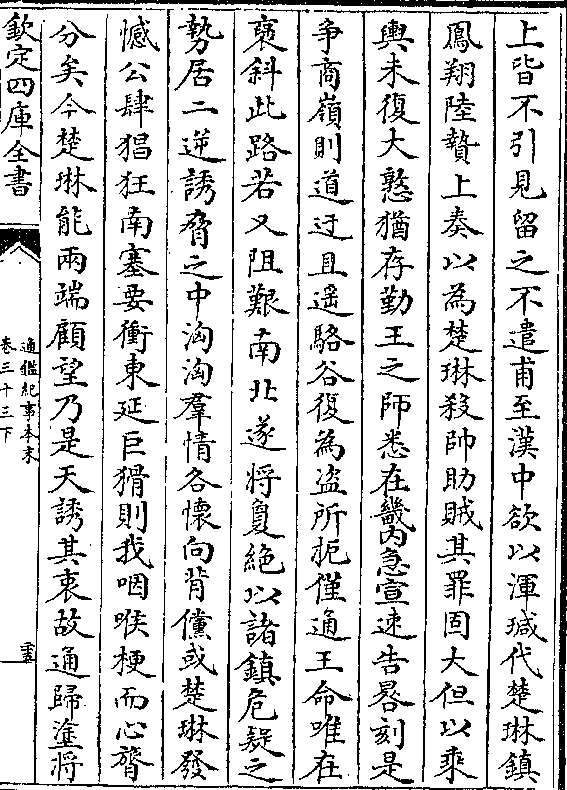 上皆不引見留之不遣甫至漢中欲以渾瑊代楚琳鎮
鳳翔陸贄上奏以為楚琳殺帥助賊其罪固大但以乗
輿未復大憝猶存勤王之師悉在畿内急宣速告晷刻是
争商嶺則道迂且遥駱谷復為盗所扼僅通王命唯在
襃斜此路若又阻艱南北遂將敻絶以諸鎮危疑之
勢居二逆誘脅之中洶洶羣情各懷向背儻或楚琳發
憾公肆猖狂南塞要衝東延巨猾則我咽喉梗而心膂
分矣今楚琳能兩端顧望乃是天誘其衷故通歸塗將
欽定四庫全書
通鑑紀事本末
卷三十三下